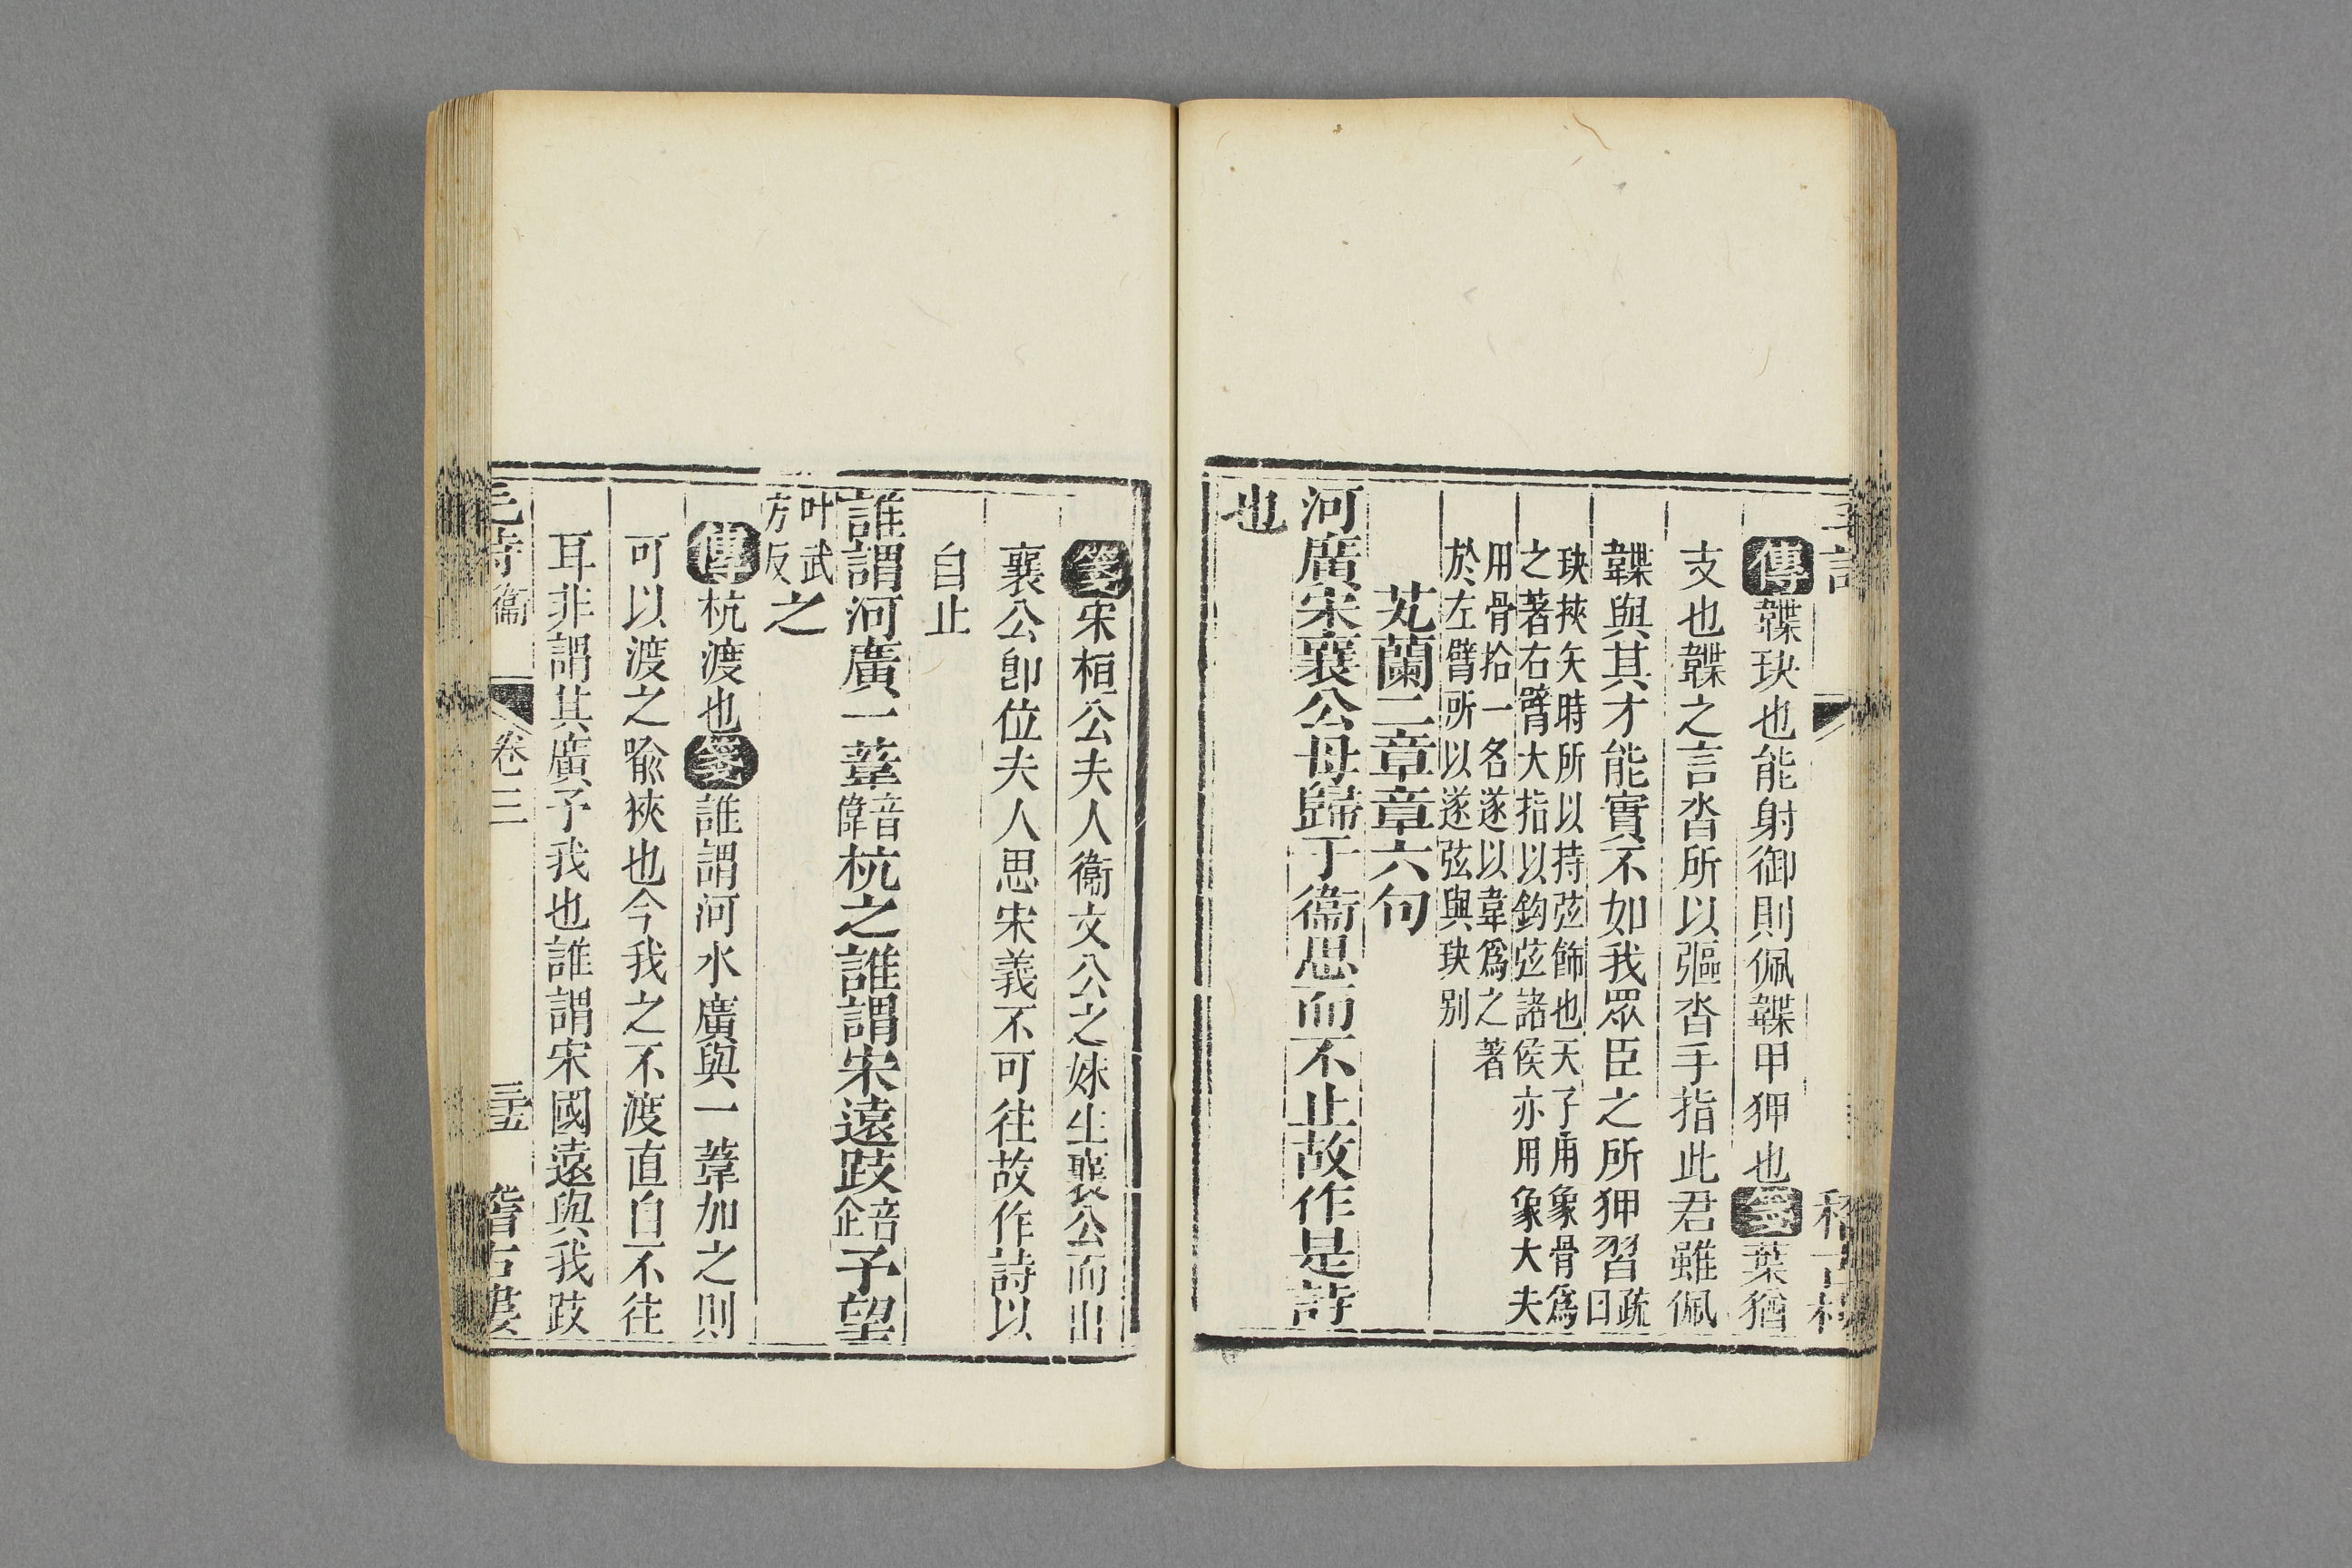 傳韘玦也能射御則佩韘甲狎也箋葉猶
支也韘之言沓所以彄沓手指此君雖佩
韘與其才能實不如我眾臣之所狎習疏曰
玦挾矢時所以持弦飾也天子用象骨爲
之著右臂大指以鉤弦諸侯亦用象大夫
用骨拾一名遂以韋爲之著
於左臂所以遂弦與玦别
芄蘭二章章六句
河廣宋襄公母歸于衞思而不止故作是詩
也
箋宋桓公夫人衞文公之妹生襄公而出
襄公卽位夫人思宋義不可往故作詩以
自止
誰謂河廣一葦音偉杭之誰謂宋遠跂音企予望
叶武方反之
傳杭渡也箋誰謂河水廣與一葦加之則
可以渡之喩狹也今我之不渡直自不往
耳非謂其廣予我也誰謂宋國遠與我跂
毛詩衞 卷三 三五 稽古樓